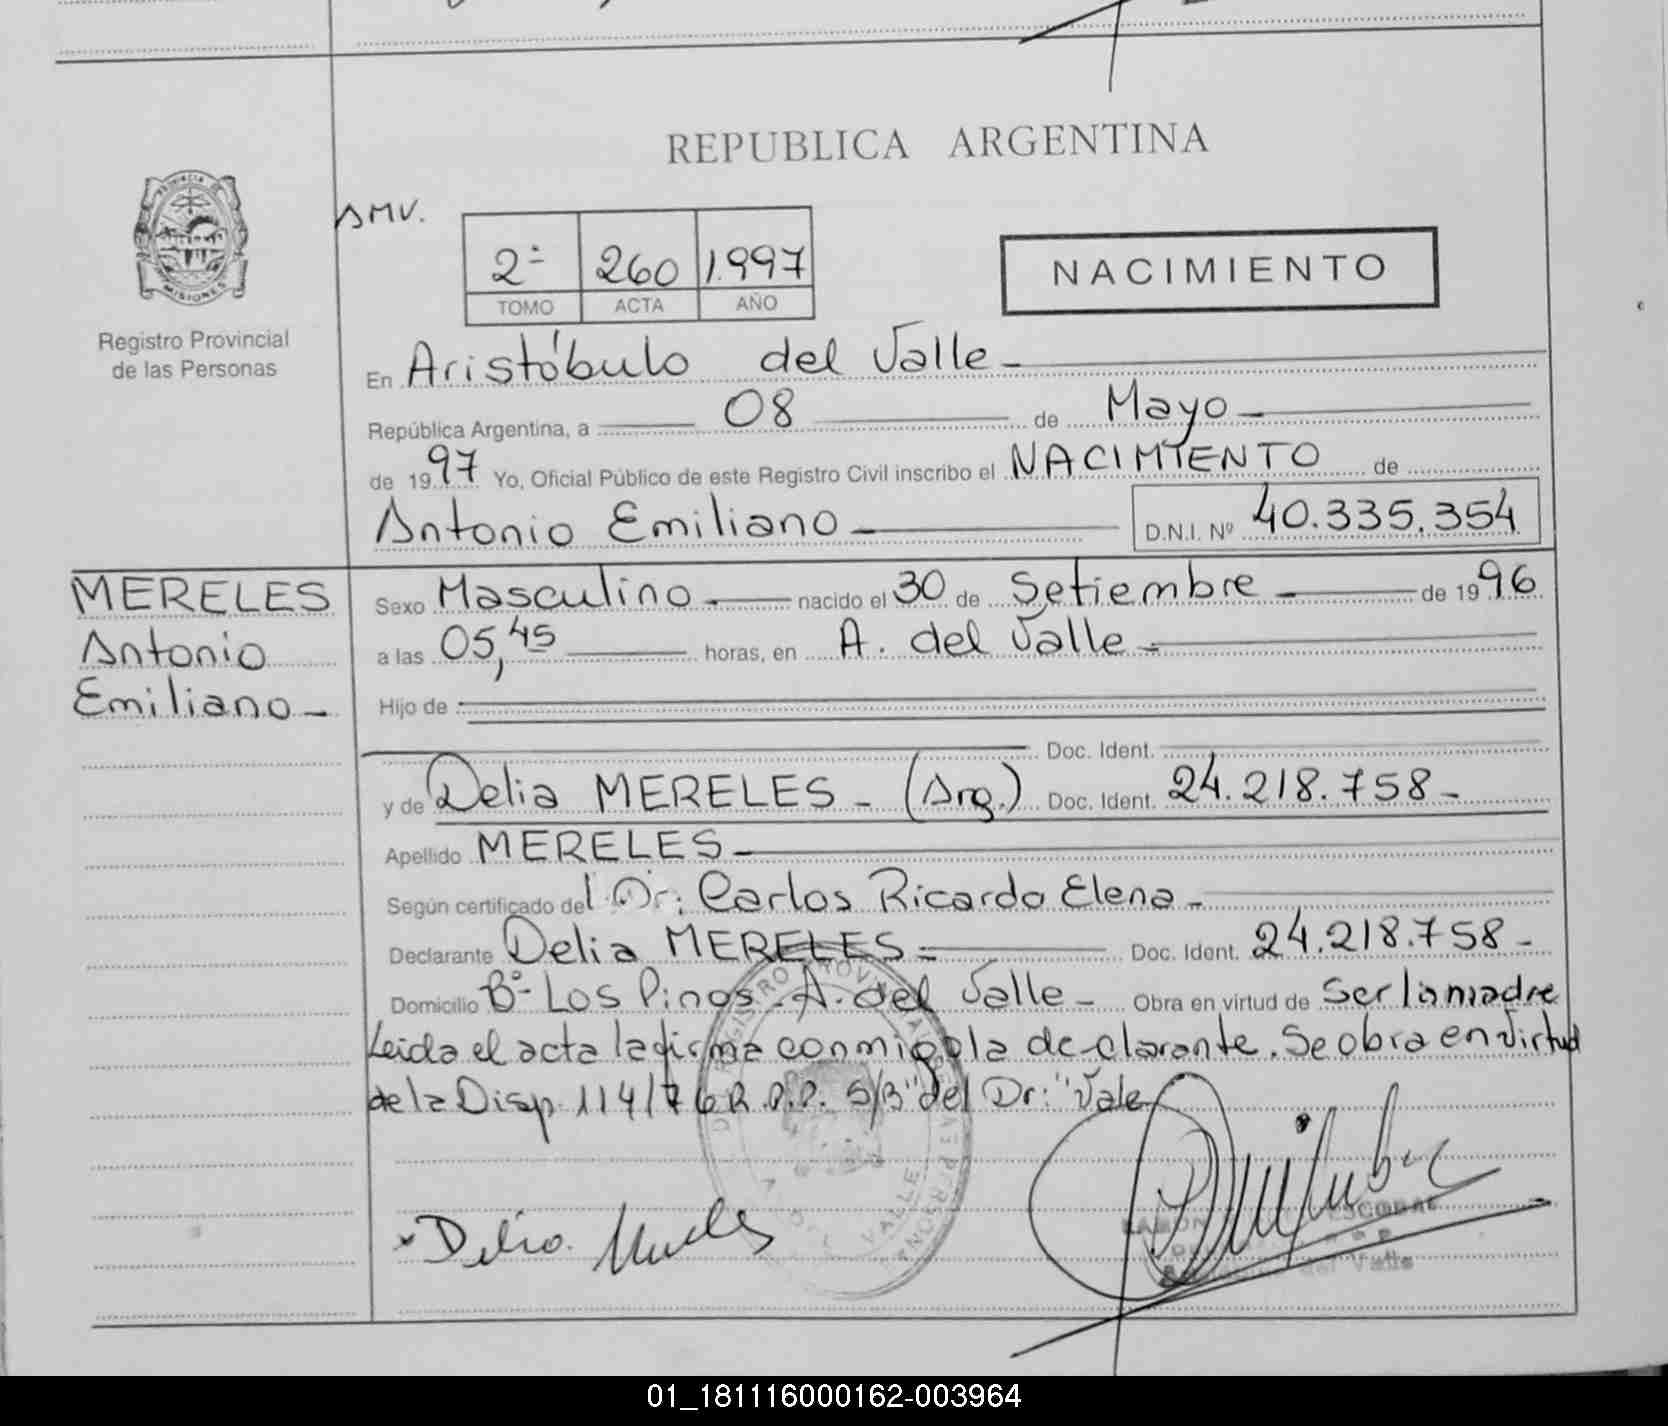 REPUBLICA ARGENTINA
PROVINCIA DE
MISIONES
Registro Provincial
de las Personas
AMV.
2ª 260 1.997
TOMO ACTA AÑO
NACIMIENTO
En Aristóbulo del Valle
República Argentina, a 08 de Mayo
de 1997 Yo, Oficial Público de este Registro Civil inscribo el NACIMIENTO de
Antonio Emiliano D.N.I. Nº 40.335.354
MERELES
Antonio
Emiliano
Sexo Masculino nacido el 30 de Setiembre de 1996
a las 05,45 horas, en A. del Valle
Hijo de
Doc. Ident.
y de Delia MERELES - (Arg.) Doc. Ident. 24.218.758-
Apellido MERELES
Según certificado del Dr: Carlos Ricardo Elena
Declarante Delia MERELES Doc. Ident. 24.218.758-
Domicilio Bº Los Pinos - A. del Valle - Obra en virtud de ser la madre
Leida el acta la firma conmigo la de-clarante. Se obra en virtud
de la Disp. 114/76 R.P.P. S/B "del Dr:" Vale
Delia Mereles
RAMON ESCOBAR
del Valle
01_181116000162-003964